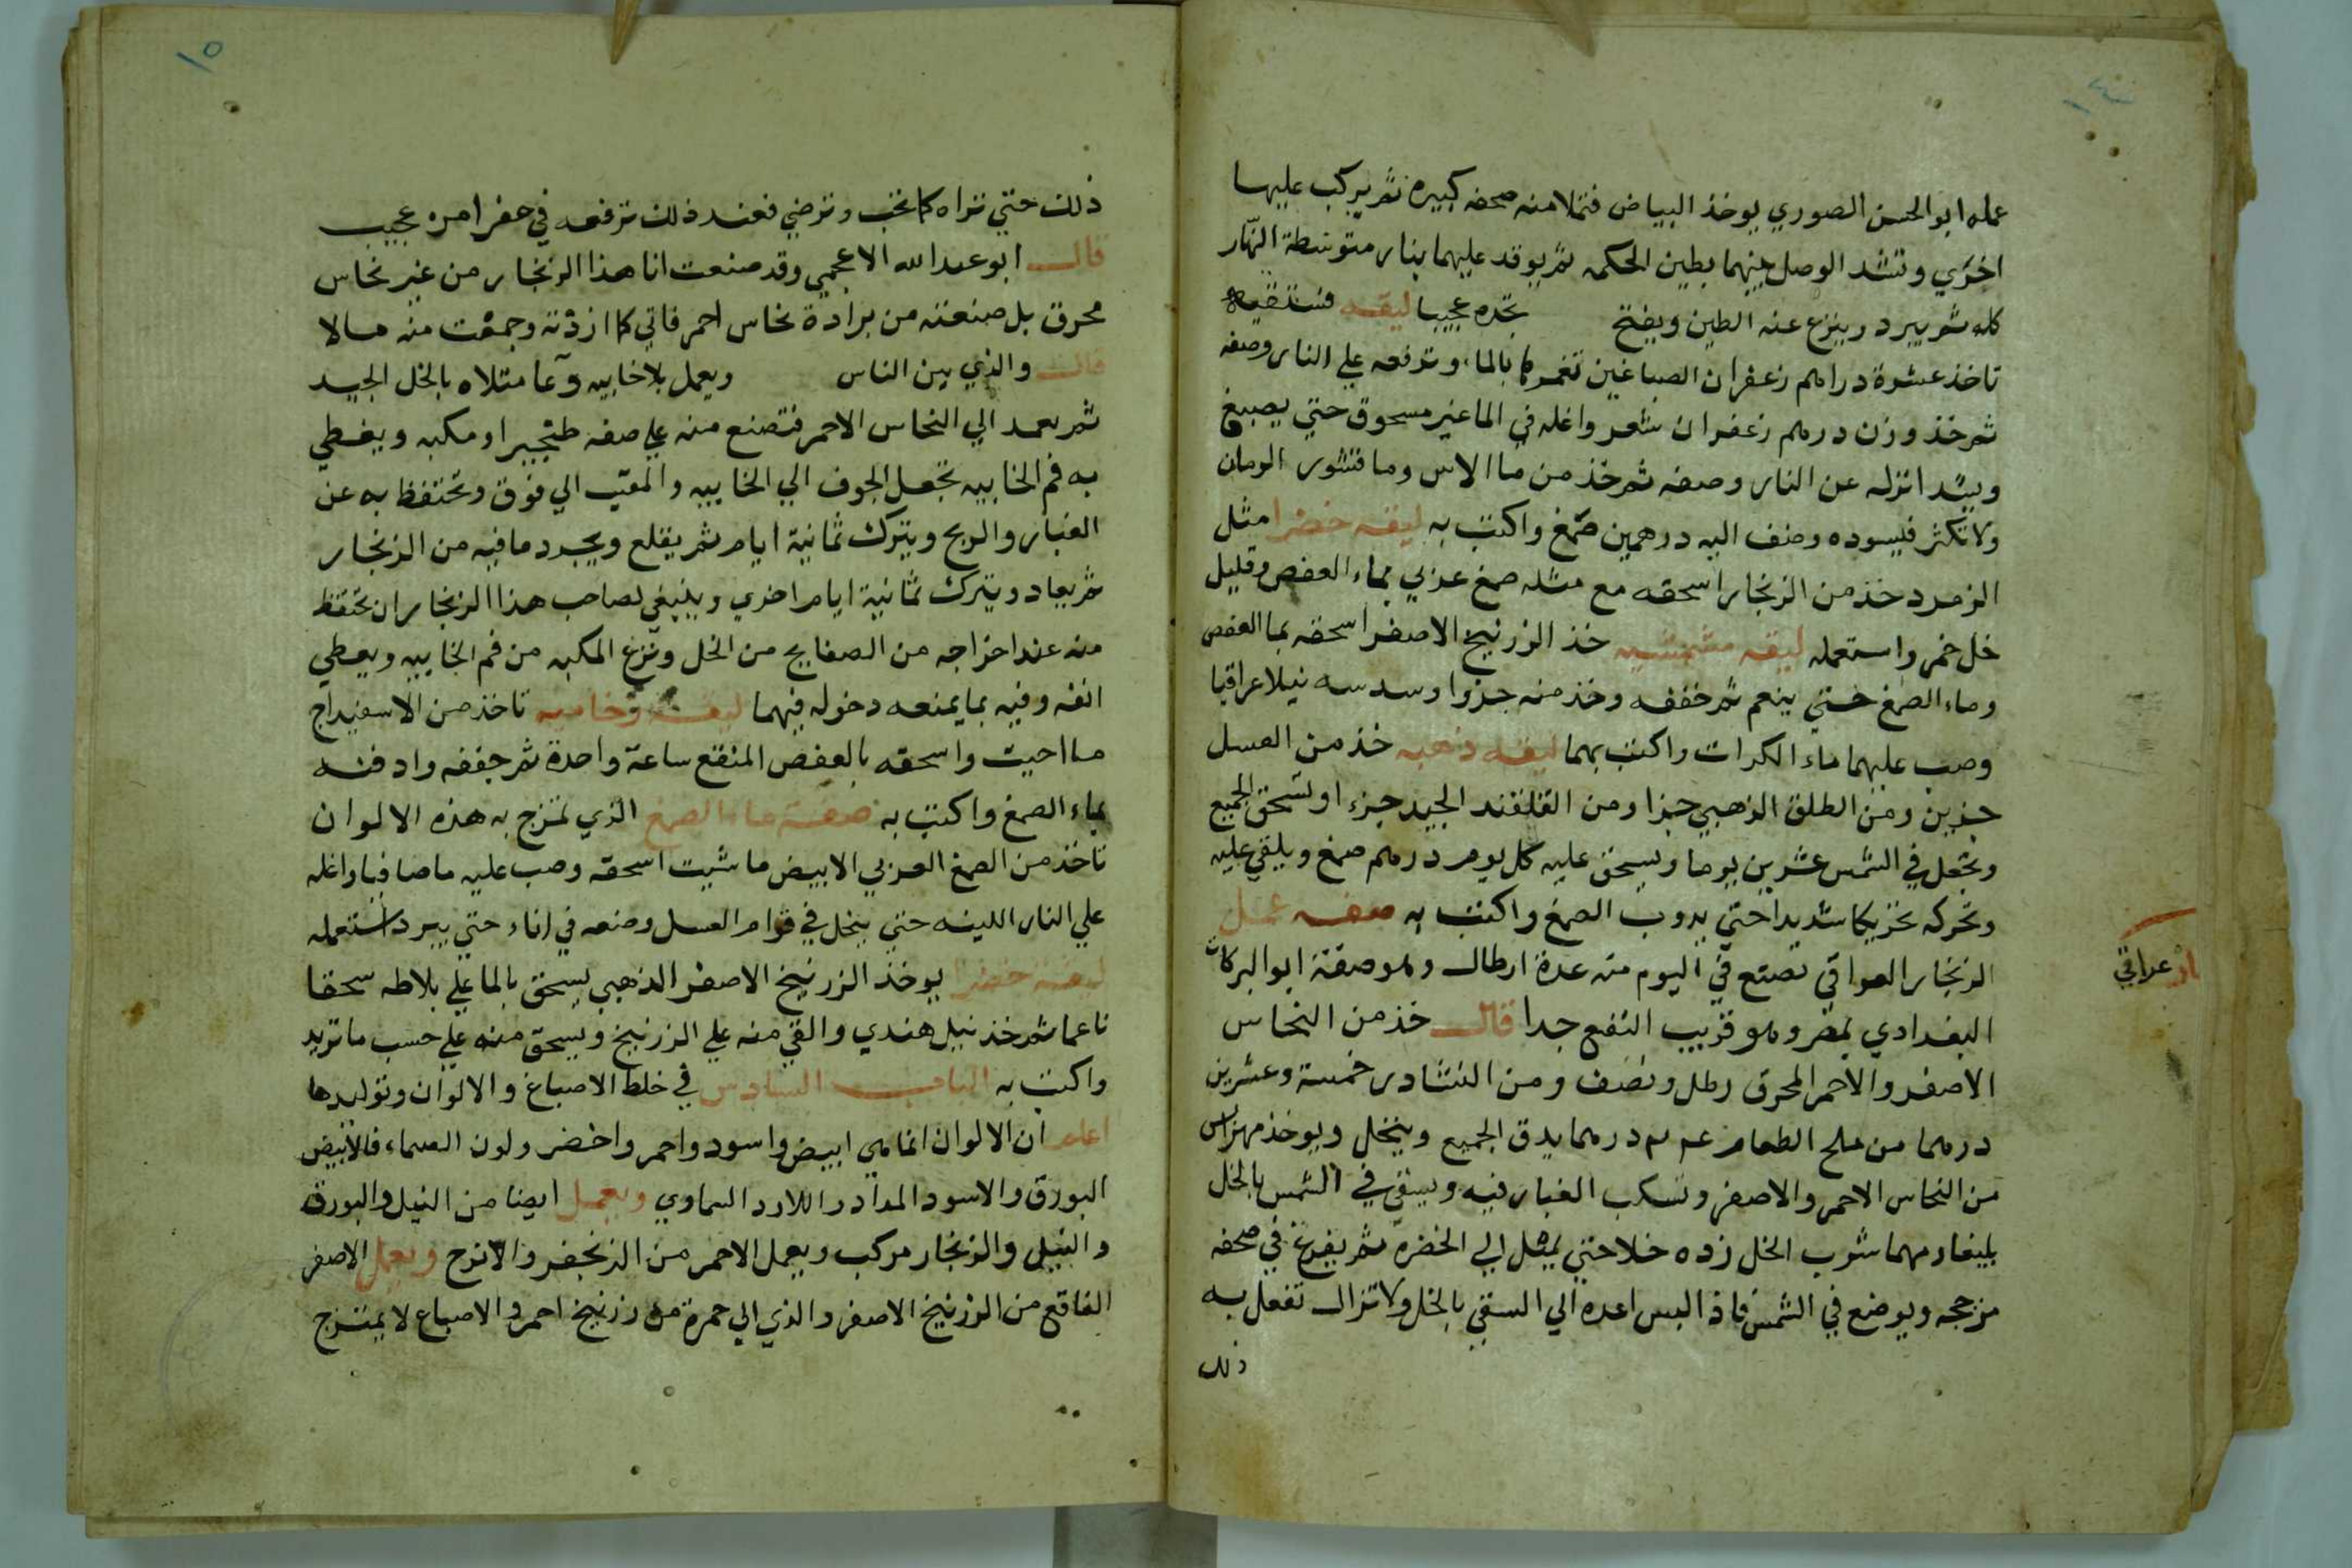 ١٤
عمله ابو الحسن الصوري يوخذ البياض فتملا منه صحفه كبيره ثم يركب عليها
اخري وتشد الوصل بينهما بطين الحكمه ثم يوقد عليهما بنار متوسطة النهار
كله ثم يبرد وينزع عنه الطين ويفتح تجده عجيبا ليقه
تاخذ عشرة دراهم زعفران الصباغين تغمرها بالماء وترفعه علي النار وصفه
ثم خذ وزن درهم زعفران شعر واغله في الما غير مسحوق حتي يصبغ
انزله عن النار وصفه ثم خذ من ما الاس وما قشور الرمان
ولا تكثر فيسوده وضف اليه درهمين صمغ واكتب به ليقه خضرا مثل
الزمرد خذ من الزنجار اسحقه مع مثله صمغ عربي بماء العفص وقليل
خل خمر واستعمله ليقه مشمشيه خذ الزرنيخ الاصفر اسحقه بما العفص
وماء الصمغ حتي ينعم ثم خففه وخذ منه جزوا وسدسه نيلا عراقيا
وصب عليهما ماء الكرات واكتب بهما ليقه ذهبه خذ من العسل
جزين ومن الطلق الذهبي جزا ومن القلقند الجيد جزء او تسحق الجميع
وتجعل في الشمس عشرين يوما ويسحق عليه كل يوم درهم صمغ ويلقي عليه
وتحركه تحريكا شديدا حتي يدوب الصمغ واكتب به صفه عمل
الزنجار العراقي تصنع في اليوم منه عدة ارطال وهو صفة ابو البركات
عراقي
البغدادي بمصر وهو قريب النفع جدا قال خذ من النحاس
الاصفر والاحمر المحرق رطل ونصف ومن النشادر خمسة وعشرين
درهما من ملح الطعام درهما يدق الجميع وينخل ويوخذ مهراس
من النحاس الاحمر والاصفر وتسكب الغبار فيه ويسقي في الشمس بالخل
مهما شرب الخل زده خلا حتي يميل الي الخضره ثم يفرغ في صحفه
مزججه ويوضع في الشمس فاذا ايبس اعده الي السقي بالخل ولا تزال تفعل به
ذلك
١٥
ذلك حتي تراه كما تحب وترضي فعند ذلك ترفعه في امره عجيب
قال ابو عبد الله الاعجمي وقد صنعت انا هذا الزنجار من غير نحاس
محرق بل صنعته من برادة نحاس احمر فاتي كما اردته وجمعت منه مالا
قال والذي بين الناس ويعمل بلا خابيه وعا متلاه بالخل الجيد
ثم يعمد الي النحاس الاحمر فتصنع منه علي صفه طنجير او مكبه ويغطي
به فم الخابيه تجعل الجوف الي الخابيه والمقبب الي فوق وتحتفظ به عن
الغبار والريح ويترك ثمانية ايام ثم يقلع ويجرد ما فيه من الزنجار
ثم يعاد ويترك ثمانية ايام اخري وينبغي لصاحب هذا الزنجار ان يحتفظ
منه عند اخراجه من الصفايح من الخل ونزع المكبه من فم الخابيه ويغطي
انفه وفيه بما يمنعه دخوله فيهما ليقه رخاميه تاخذ من الاسفيداج
ما احبت واسحقه بالعفص المنقع ساعة واحدة ثم جففه وادفنه
بماء الصمغ واكتب به صفة ماء الصمغ الذي تمزج به هذه الالوان
تاخذ من الصمغ العربي الابيض ما شيت اسحقه وصب عليه ما صافيا واغله
علي النار اللينه حتي ينحل في قوام العسل وضعه في اناء حتي يبرد استعمله
ليقه خضرا يوخذ الزرنيخ الاصفر الذهبي يسحق بالما علي بلاطه سحقا
ناعما ثم خذ نيل هندي والقي منه علي الزرنيخ ويسحق منه علي حسب ما تريد
واكتب به الباب السادس في خلط الاصباغ والالوان وتوليدها
اعلم ان الالوان انما هي ابيض واسود واحمر واخضر ولون السماء فالابيض
البورق والاسود المداد واللازورد السماوي ويعمل ايضا من النيل والبورق
والنيل والزنجار مركب ويعمل الاحمر من الزنجفر والانزح ويعمل الاصفر
الفاقع من الزرنيخ الاصفر والذي الي حمرة من زرنيخ احمر والاصباغ لا يمتزج